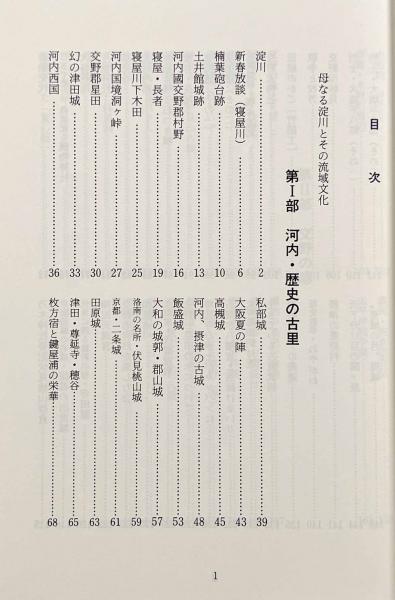 目次
母なる淀川とその流域文化
第Ⅰ部 河内・歴史の古里
淀川……………2
新春放談(寝屋川)……………6
楠葉砲台跡……………10
土井館城跡……………13
河内國交野郡村野……………16
寝屋・長者……………19
寝屋川下木田……………25
河内国境洞ヶ峠……………27
交野郡星田……………30
幻の津田城……………33
河内西国……………36
私部城……………39
大阪夏の陣……………43
高槻城……………45
河内、摂津の古城……………48
飯盛城……………53
大和の城郭・郡山城……………57
洛南の名所・伏見桃山城……………59
京都・二条城……………61
田原城……………63
津田・尊延寺・穂谷……………65
枚方宿と鍵屋浦の栄華……………68
1